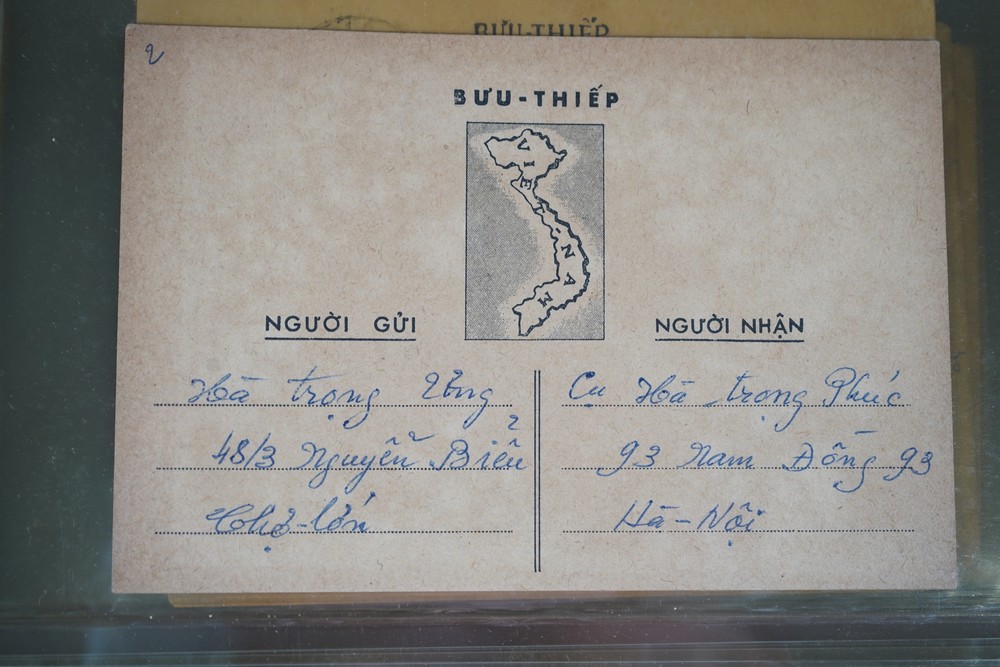 BƯU-THIẾP
2
BƯU-THIẾP
VIỆT-NAM
NGƯỜI GỬI
NGƯỜI NHẬN
Hà trọng
48/3 Nguyễn Biểu
Chợ-lớn
Cụ Hà trọng Phúc
93 Nam Đồng 93
Hà-Nội